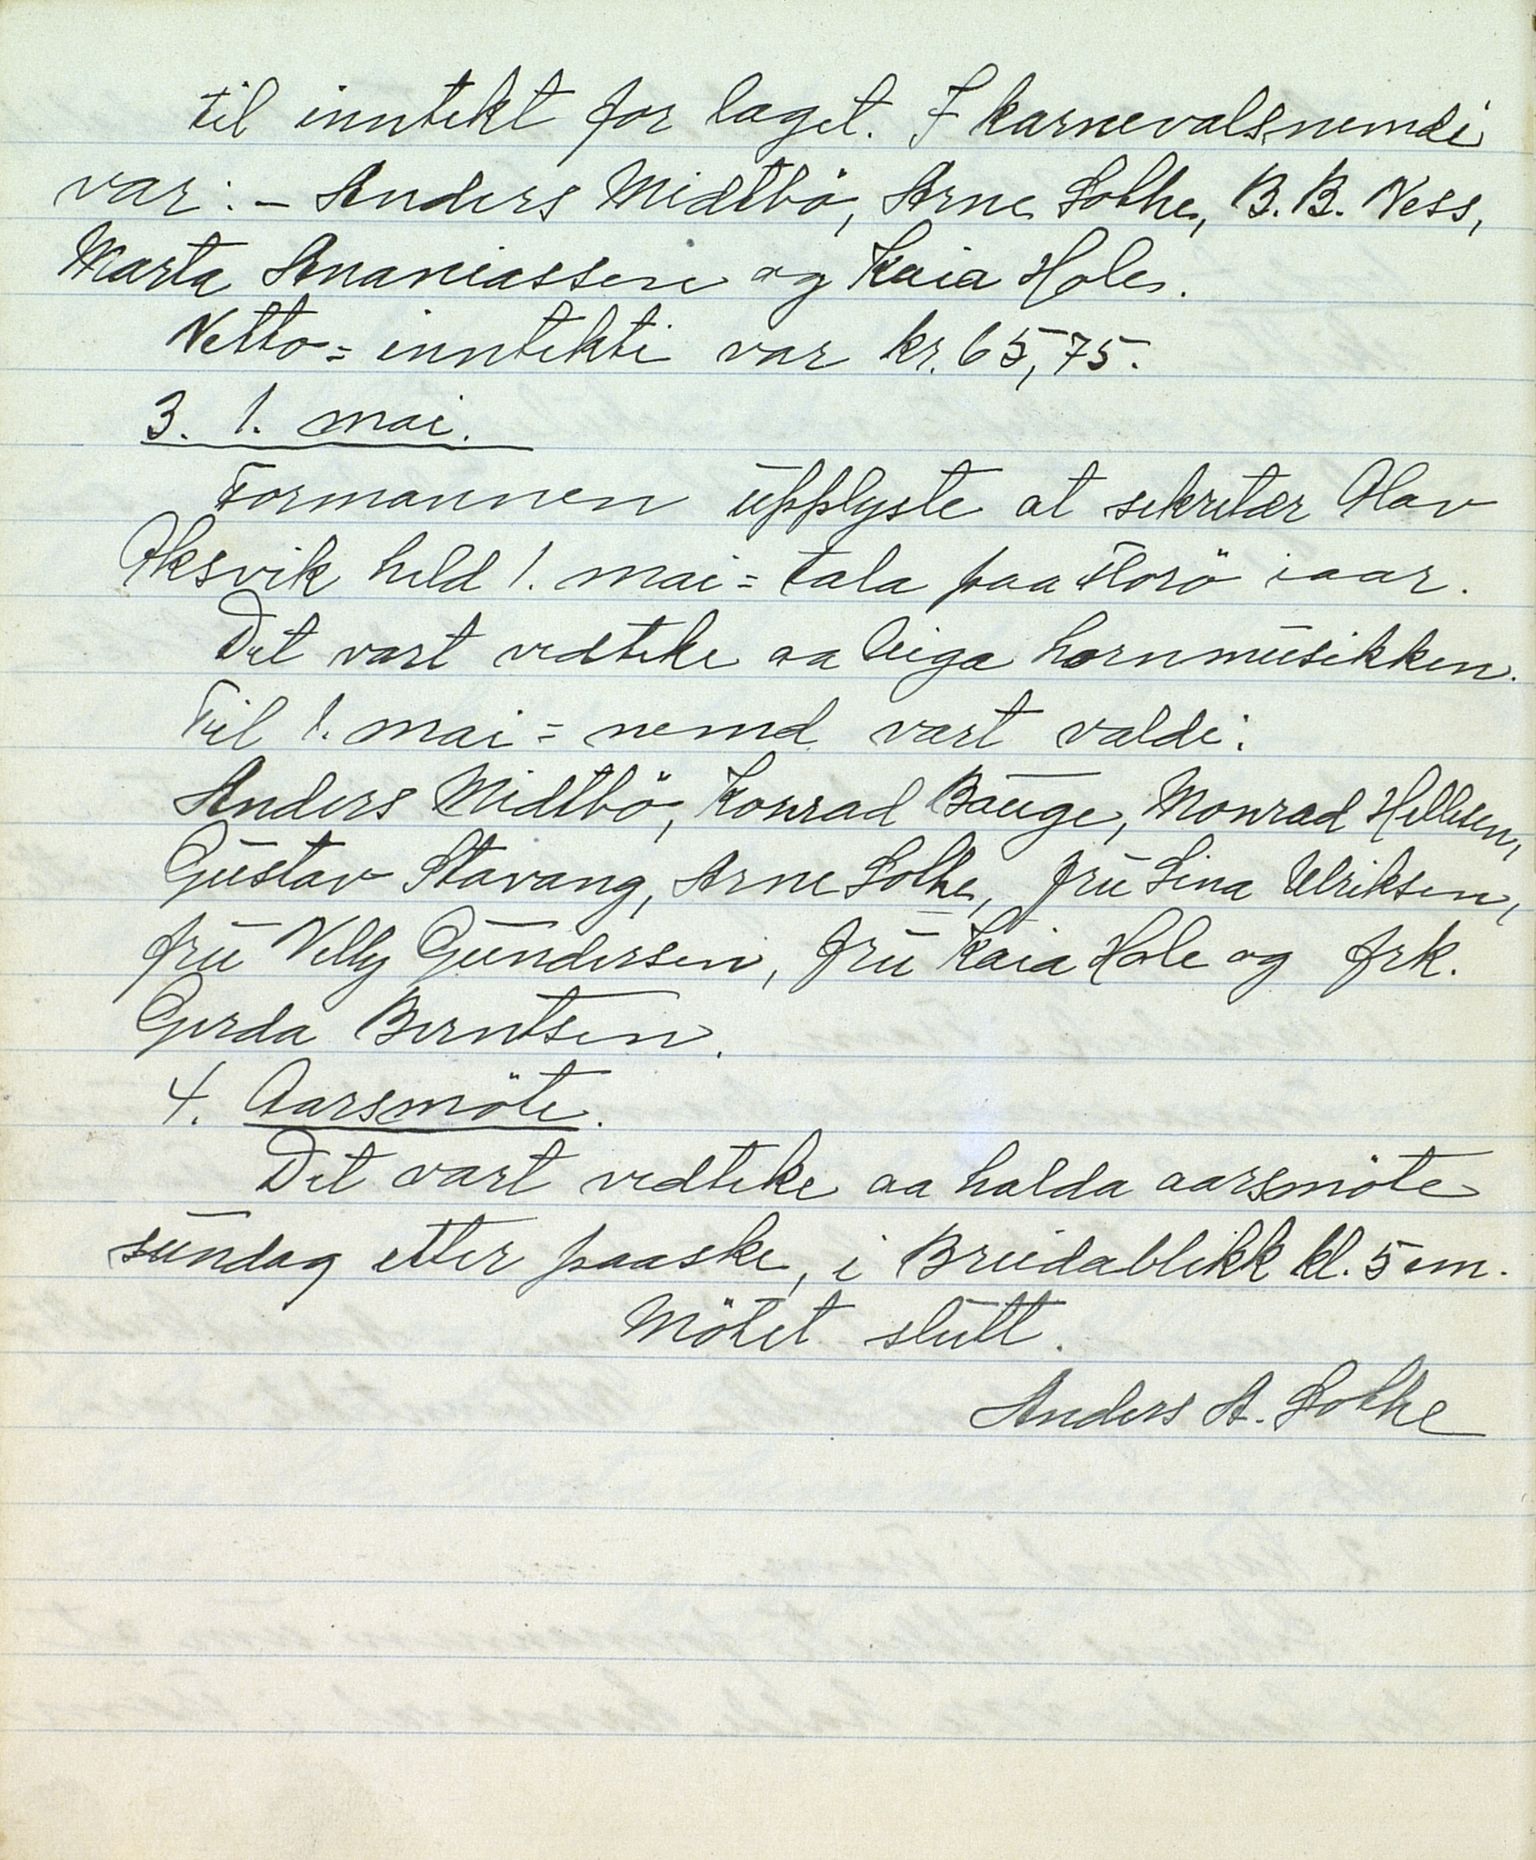 til inntekt for laget. I karnevalsnemdi
var: - Anders Midtbö, Arne Solhe, B. B. Ness,
Marta Ananiassen og Kaia Hole.
Netto=inntekti var kr. 65,75.
3. 1. mai.
Formannen upplyste at sekretær Olav
Oksvik held 1. mai=tala paa Florö iaar.
Det vart vedteke aa leiga hornmusikken.
Til 1. mai=nemd vart valdi:
Anders Midtbö, Konrad Bauge, Monrad Hellesen,
Gustav Stavang, Arne Solhe, fru Lina Ulriksen,
fru Nelly Gundersen, fru Kaia Hole og frk.
Gerda Berntsen.
4. Aarsmöte.
Det vart vedteke aa halda aarsmöte
sundag etter paaske, i Breidablikk kl. 5 em.
Mötet slutt.
Anders A. Solhe